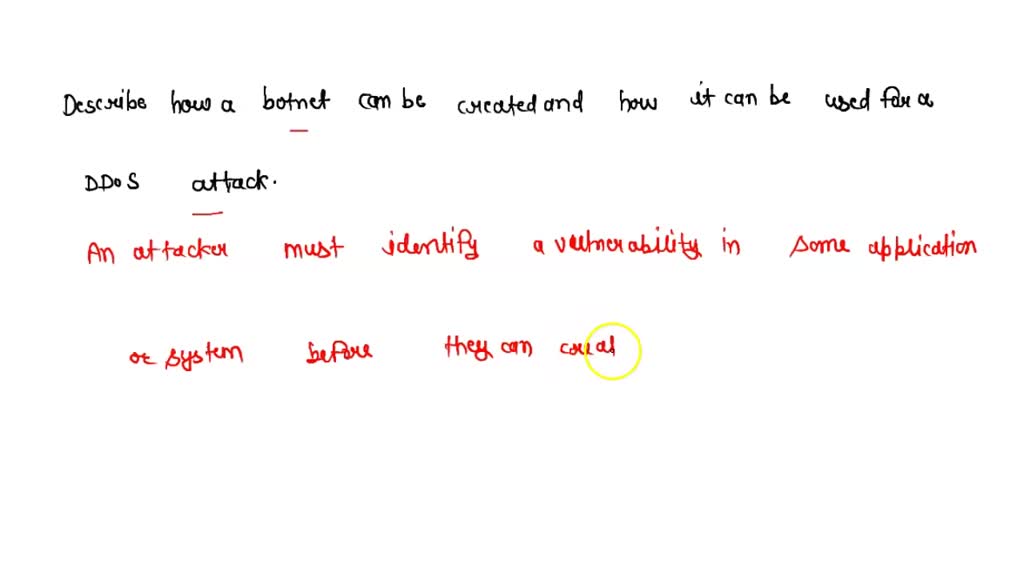 Describe how a botnet can be created and how it can be used for a
DDoS attack.
An attacker must identify a vulnerability in some application
or system before they can creat